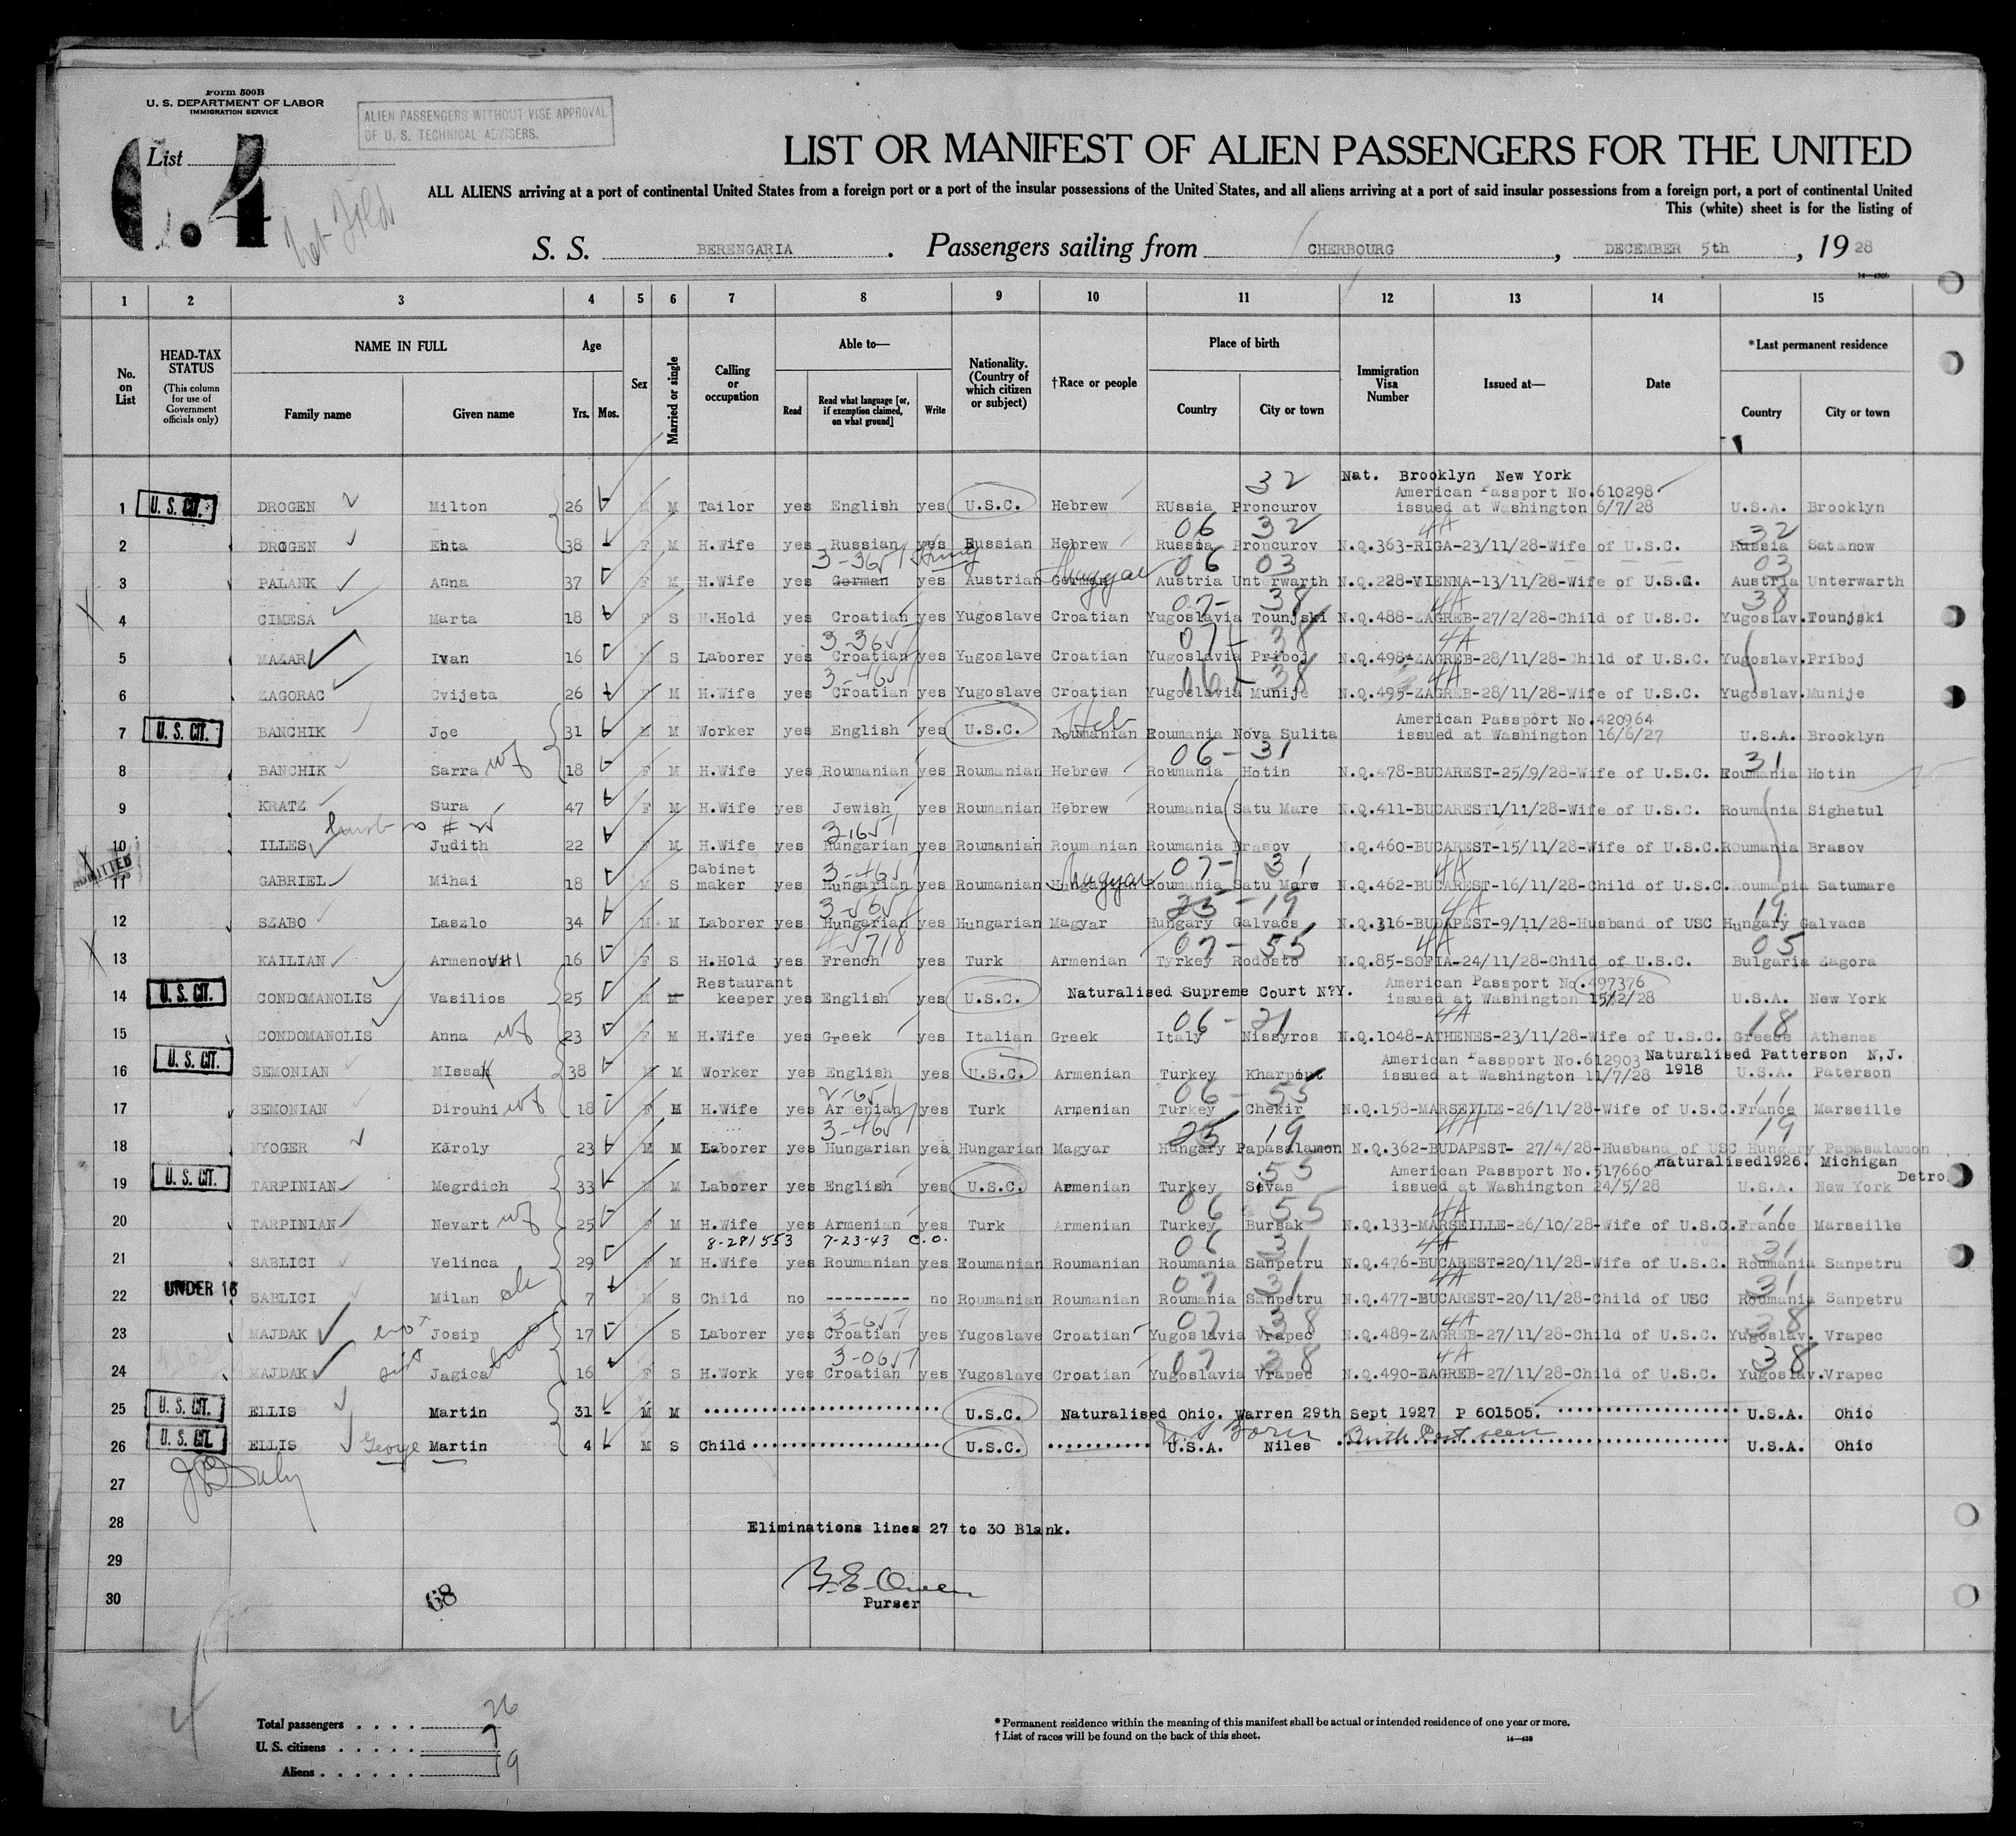 Form 500B
U. S. DEPARTMENT OF LABOR
IMMIGRATION SERVICE
ALIEN PASSENGERS WITHOUT VISE APPROVAL
OF U. S. TECHNICAL ADVISERS.
List
4
LIST OR MANIFEST OF ALIEN PASSENGERS FOR THE UNITED
ALL ALIENS arriving at a port of continental United States from a foreign port or a port of the insular possessions of the United States, and all aliens arriving at a port of said insular possessions from a foreign port, a port of continental United
This (white) sheet is for the listing of
S. S. BERENGARIA. Passengers sailing from CHERBOURG, DECEMBER 5th, 19 28
1 2 3 4 5 6 7 8 9 10 11 12 13 14 15
No. on List HEAD-TAX STATUS (This column for use of Government officials only) NAME IN FULL Family name Given name Age Yrs. Mos. Sex Married or single Calling or occupation Able to— Read Read what language [or, if exemption claimed, on what ground] Write Nationality. (Country of which citizen or subject) †Race or people Place of birth Country City or town Immigration Visa Number Issued at— Date *Last permanent residence Country City or town
32 Nat. Brooklyn New York
American Passport No.610298
1 U. S. CIT. DROGEN Milton 26 M Tailor yes English yes U.S.C. Hebrew RUssia Proncurov issued at Washington 6/7/28 U.S.A. Brooklyn
06 32 4A 32
2 DROGEN Ehta 38 F M H.Wife yes Russian yes Russian Hebrew Russia Proncurov N.Q.363-RIGA-23/11/28-Wife of U.S.C. Russia Satanow
06 03 03
3 PALANK Anna 37 F M H.Wife yes German yes Austrian German Magyar Austria Unterwarth N.Q.228-VIENNA-13/11/28-Wife of U.S.C. Austria Unterwarth
07- 38 4A 38
4 CIMESA Marta 18 F S H.Hold yes Croatian yes Yugoslave Croatian Yugoslavia Tounjski N.Q.488-ZAGREB-27/2/28-Child of U.S.C. Yugoslav.Tounjski
07- 38 4A
5 MAZAR Ivan 16 S Laborer yes Croatian yes Yugoslave Croatian Yugoslavia Priboj N.Q.498-ZAGREB-28/11/28-Child of U.S.C. Yugoslav.Priboj
06- 38 4A
6 ZAGORAC Cvijeta 26 F M H.Wife yes Croatian yes Yugoslave Croatian Yugoslavia Munije N.Q.495-ZAGREB-28/11/28-Wife of U.S.C. Yugoslav.Munije
Heb American Passport No.420964
7 U. S. CIT. BANCHIK Joe 31 M M Worker yes English yes U.S.C. Roumanian Roumania Nova Sulita issued at Washington 16/6/27 U.S.A. Brooklyn
06-31 31
8 BANCHIK Sarra wf 18 F M H.Wife yes Roumanian yes Roumanian Hebrew Roumania Hotin N.Q.478-BUCAREST-25/9/28-Wife of U.S.C. Roumania Hotin
9 KRATZ Sura 47 F M H.Wife yes Jewish yes Roumanian Hebrew Roumania Satu Mare N.Q.411-BUCAREST1/11/28-Wife of U.S.C. Roumania Sighetul
10 ILLES Judith 22 F M H.Wife yes Hungarian yes Roumanian Roumanian Roumania Brasov N.Q.460-BUCAREST-15/11/28-Wife of U.S.C.Roumania Brasov
Cabinet 07- 31 4A
11 GABRIEL Mihai 18 M S maker yes Hungarian yes Roumanian Hungarian Magyar Roumania Satu Mare N.Q.462-BUCAREST-16/11/28-Child of U.S.C.Roumania Satumare
25-19 4A 19
12 SZABO Laszlo 34 M M Laborer yes Hungarian yes Hungarian Magyar Hungary Galvacs N.Q.316-BUDAPEST-9/11/28-Husband of USC Hungary Galvacs
07-55 4A 05
13 KAILIAN Armenouhi 16 F S H.Hold yes French yes Turk Armenian Tyrkey Rodosto N.Q.85-SOFIA-24/11/28-Child of U.S.C. Bulgaria Zagora
Restaurant American Passport No.497376
14 U. S. CIT. CONDOMANOLIS Vasilios 25 M M keeper yes English yes U.S.C. Naturalised Supreme Court N?Y. issued at Washington 15/2/28 U.S.A. New York
06-21 4A 18
15 CONDOMANOLIS Anna wf 23 F M H.Wife yes Greek yes Italian Greek Italy Nissyros N.Q.1048-ATHENES-23/11/28-Wife of U.S.C. Greece Athenes
American Passport No.612903 Naturalised Patterson N,J.
16 U. S. CIT. SEMONIAN MIssak 38 M M Worker yes English yes U.S.C. Armenian Turkey Kharpout issued at Washington 11/7/28 1918 U.S.A. Paterson
06-55 11
17 SEMONIAN Dirouhi wf 18 F M H.Wife yes Ar enian yes Turk Armenian Turkey Chekir N.Q.158-MARSEILLE-26/11/28-Wife of U.S.C.France Marseille
25 19 4A 19
18 NYOGER Karoly 23 M M Laborer yes Hungarian yes Hungarian Magyar Hungary Papasalamon N.Q.362-BUDAPEST- 27/4/28-Husband of USC Hungary Papasalamon
55 American Passport No.517660 naturalised1926. Michigan Detro
19 U. S. CIT. TARPINIAN Megrdich 33 M M Laborer yes English yes U.S.C. Armenian Turkey Sivas issued at Washington 24/5/28 U.S.A. New York
06 55 4A 11
20 TARPINIAN Nevart wf 25 F M H.Wife yes Armenian yes Turk Armenian Turkey Bursak N.Q.133-MARSEILLE-26/10/28-Wife of U.S.C.France Marseille
8-281553 7-23-43 C.O. 06 31 4A 31
21 SABLICI Velinca 29 F M H.Wife yes Roumanian yes Roumanian Roumanian Roumania Sanpetru N.Q.476-BUCAREST-20/11/28-Wife of U.S.C. Roumania Sanpetru
UNDER 16 07 31 4A 31
22 SABLICI Milan ch 7 M S Child no ---------- no Roumanian Roumanian Roumania Sanpetru N.Q.477-BUCAREST-20/11/28-Child of USC Roumania Sanpetru
07 38 4A 38
23 MAJDAK Josip 17 S Laborer yes Croatian yes Yugoslave Croatian Yugoslavia Vrapec N.Q.489-ZAGREB-27/11/28-Child of U.S.C. Yugoslav. Vrapec
07 38 4A 38
24 MAJDAK Jagica 16 F S H.Work yes Croatian yes Yugoslave Croatian Yugoslavia Vrapec N.Q.490-ZAGREB-27/11/28-Child of U.S.C. Yugoslav.Vrapec
25 U. S. CIT. ELLIS Martin 31 - M M U.S.C. Naturalised Ohio. Warren 29th Sept 1927 P 601505. U.S.A. Ohio
U.S. Born Birth Cert seen
26 U. S. CIT. ELLIS George Martin 4 M S Child U.S.C. U.S.A. Niles U.S.A. Ohio
27
28 Eliminations lines 27 to 30 Blank.
29
30
68
Owen
Purser
Total passengers . . . . 26
U. S. citizens . . . . . 7
Aliens . . . . . . 19
* Permanent residence within the meaning of this manifest shall be actual or intended residence of one year or more.
† List of races will be found on the back of this sheet.
14—430